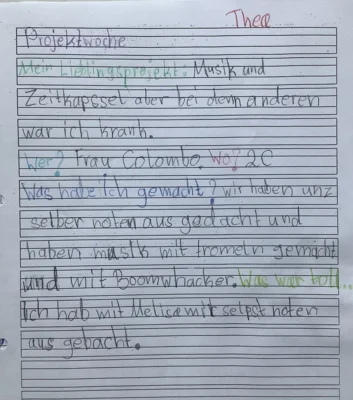 Thea
Projektwoche
Mein Lieblingsprojekt: Musik und
Zeitkapssel aber bei denn anderen
war ich krank.
Wer? Frau Colombo. Wo? 2C
Was habe ich gemacht? wir haben unz
selber noten aus gedacht und
haben musik mit tromeln gemacht
und mit Boomwhacker. Was war toll...
Ich hab mit Melisa mit selpst noten
aus gedacht.